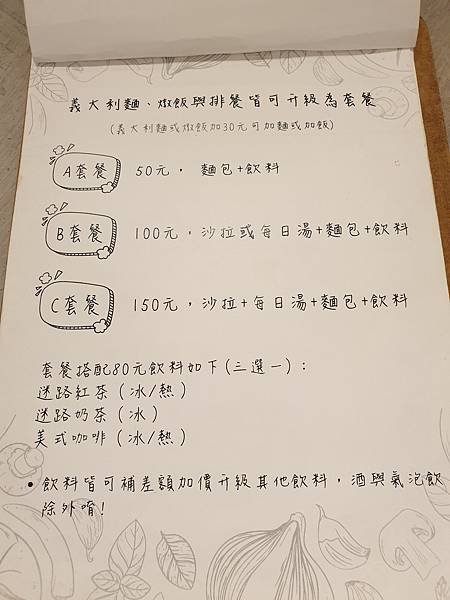 義大利麵、燉飯與排餐皆可升級為套餐
(義大利麵或燉飯加30元可加麵或加飯)
A套餐 50元， 麵包+飲料
B套餐 100元，沙拉或每日湯+麵包+飲料
C套餐 150元，沙拉+每日湯+麵包+飲料
套餐搭配80元飲料如下(三選一)：
迷路紅茶(冰/熱)
迷路奶茶(冰)
美式咖啡(冰/熱)
•飲料皆可補差額加價升級其他飲料，酒與氣泡飲
除外唷!